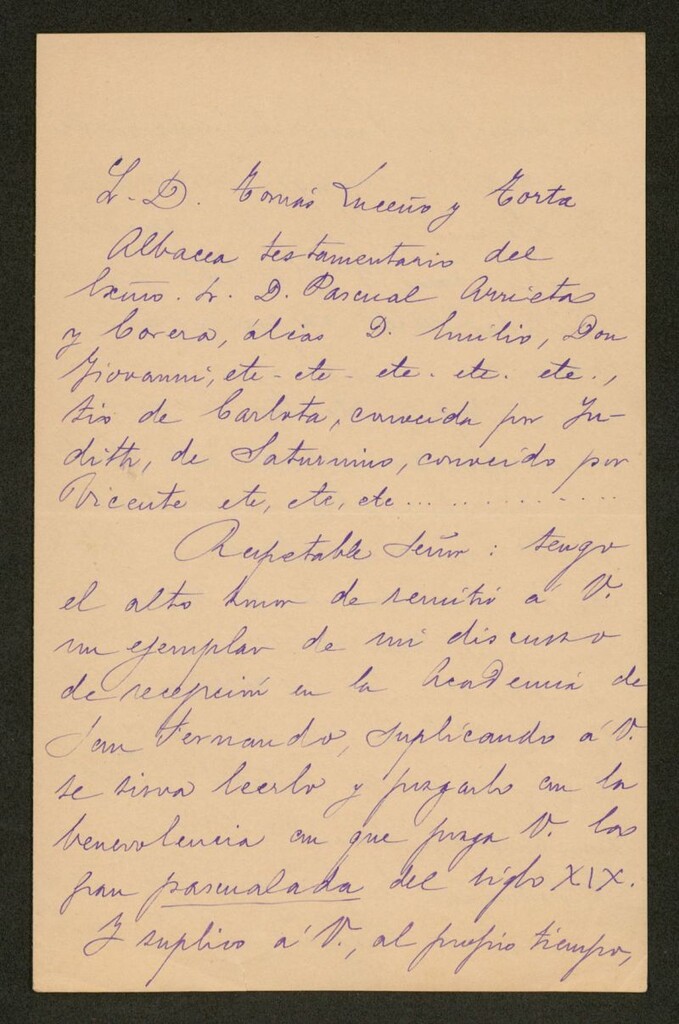 Sr. D. Tomás Luceño y Torta
Albacea testamentario del
Excmo. Sr. D. Pascual Arrieta
y Corera, álias D. Emilio, Don
Giovanni, etc - etc - etc. etc. etc.,
tio de Carlota, conocida por Ju-
dith, de Saturnino, conocido por
Vicente etc, etc, etc...............
Respetable Señor: tengo
el alto honor de remitir á V.
un ejemplar de mi discurso
de recepción en la Academia de
San Fernando, suplicando á V.
se sirva leerlo y juzgarlo con la
benevolencia con que juzga V. las
gran pascualada del siglo XIX.
Y suplico á V., al propio tiempo,